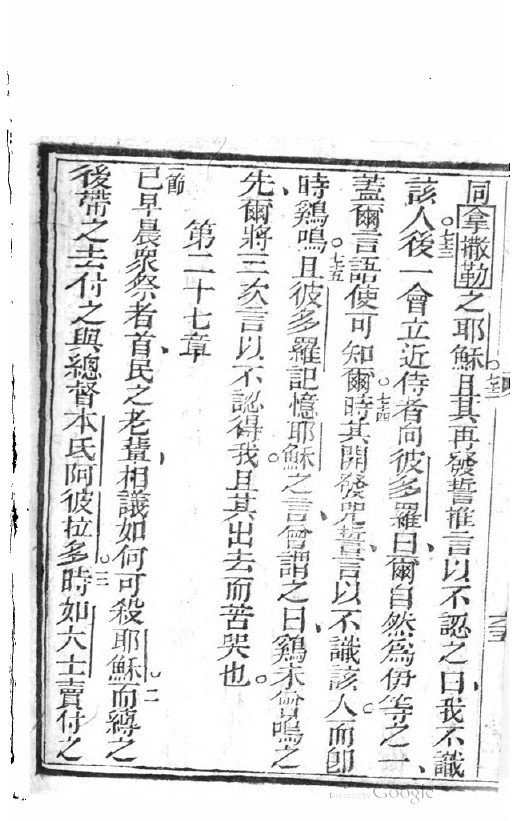 同拿撒勒之耶穌七二且其再發誓推言以不認之曰我不識
該人七三後一會立近侍者向彼多羅曰爾自然爲伊等之一
蓋爾言語使可知爾七四時其開發咒誓言以不識該人而卽
時鷄鳴七五且彼多羅記憶耶穌之言曾謂之曰鷄未曾鳴之
先爾將三次言以不認得我且其出去而苦哭也
第二十七章
節已早晨眾祭者首民之老輩相議如何可殺耶穌二而縛之
後帶之去付之與總督本氏阿彼拉多三時如大士賣付之
Google